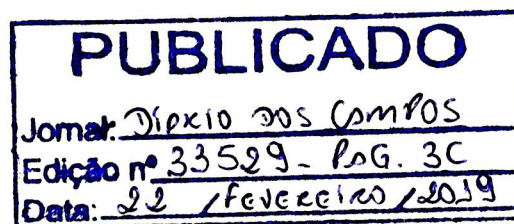 PUBLICADO
Jornal: Diário dos Campos
Edição nº 33529 - PAG. 3C
Data: 22 / Fevereiro / 2019